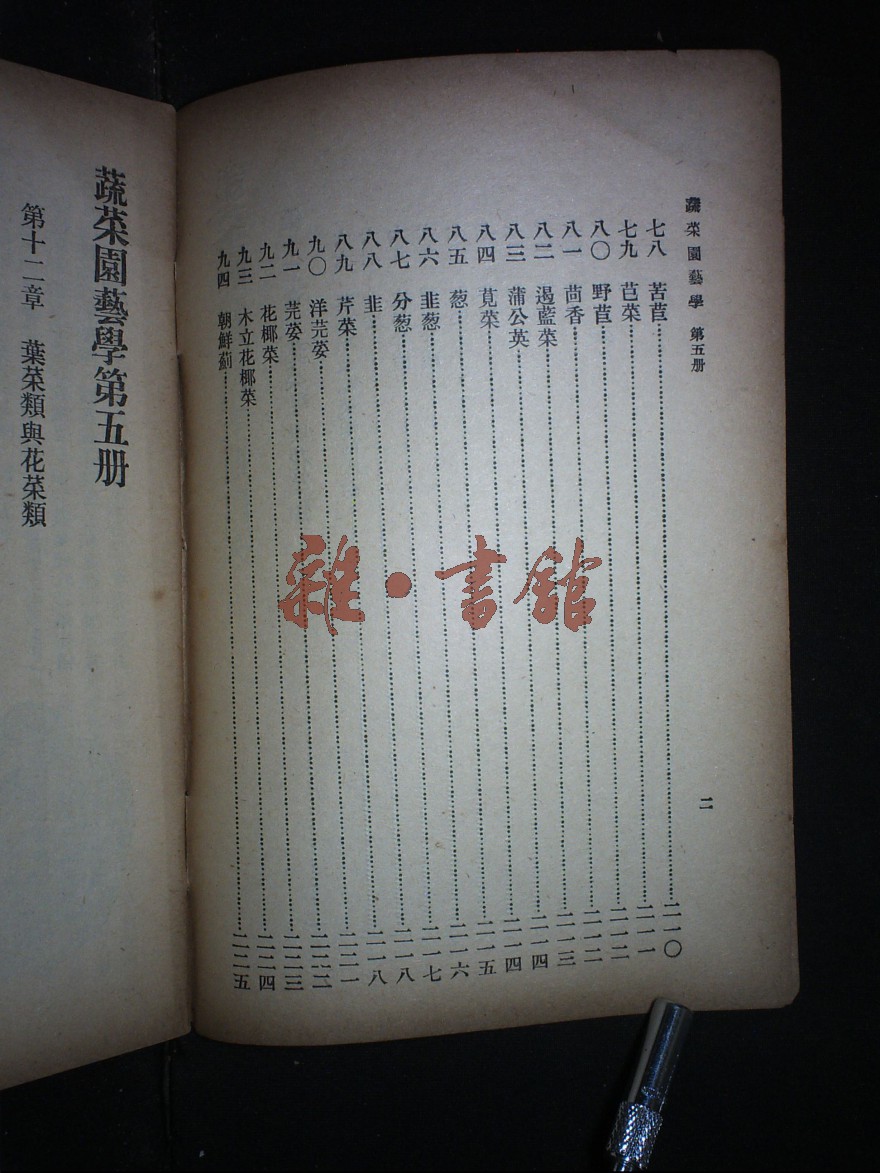 蔬菜園藝學 第五册
二
七八 苦苣……二一〇
七九 苣菜……二一一
八〇 野苣……二一二
八一 茴香……二一二
八二 遏藍菜……二一三
八三 蒲公英……二一四
八四 莧菜……二一四
八五 葱……二一五
八六 韭葱……二一六
八七 分葱……二一七
八八 韭……二一八
八九 芹菜……二一八
九〇 洋芫荽……二二一
九一 芫荽……二二二
九二 花椰菜……二二三
九三 木立花椰菜……二二四
九四 朝鮮薊……二二五
蔬菜園藝學第五册
第十二章 葉菜類與花菜類
雜·書館